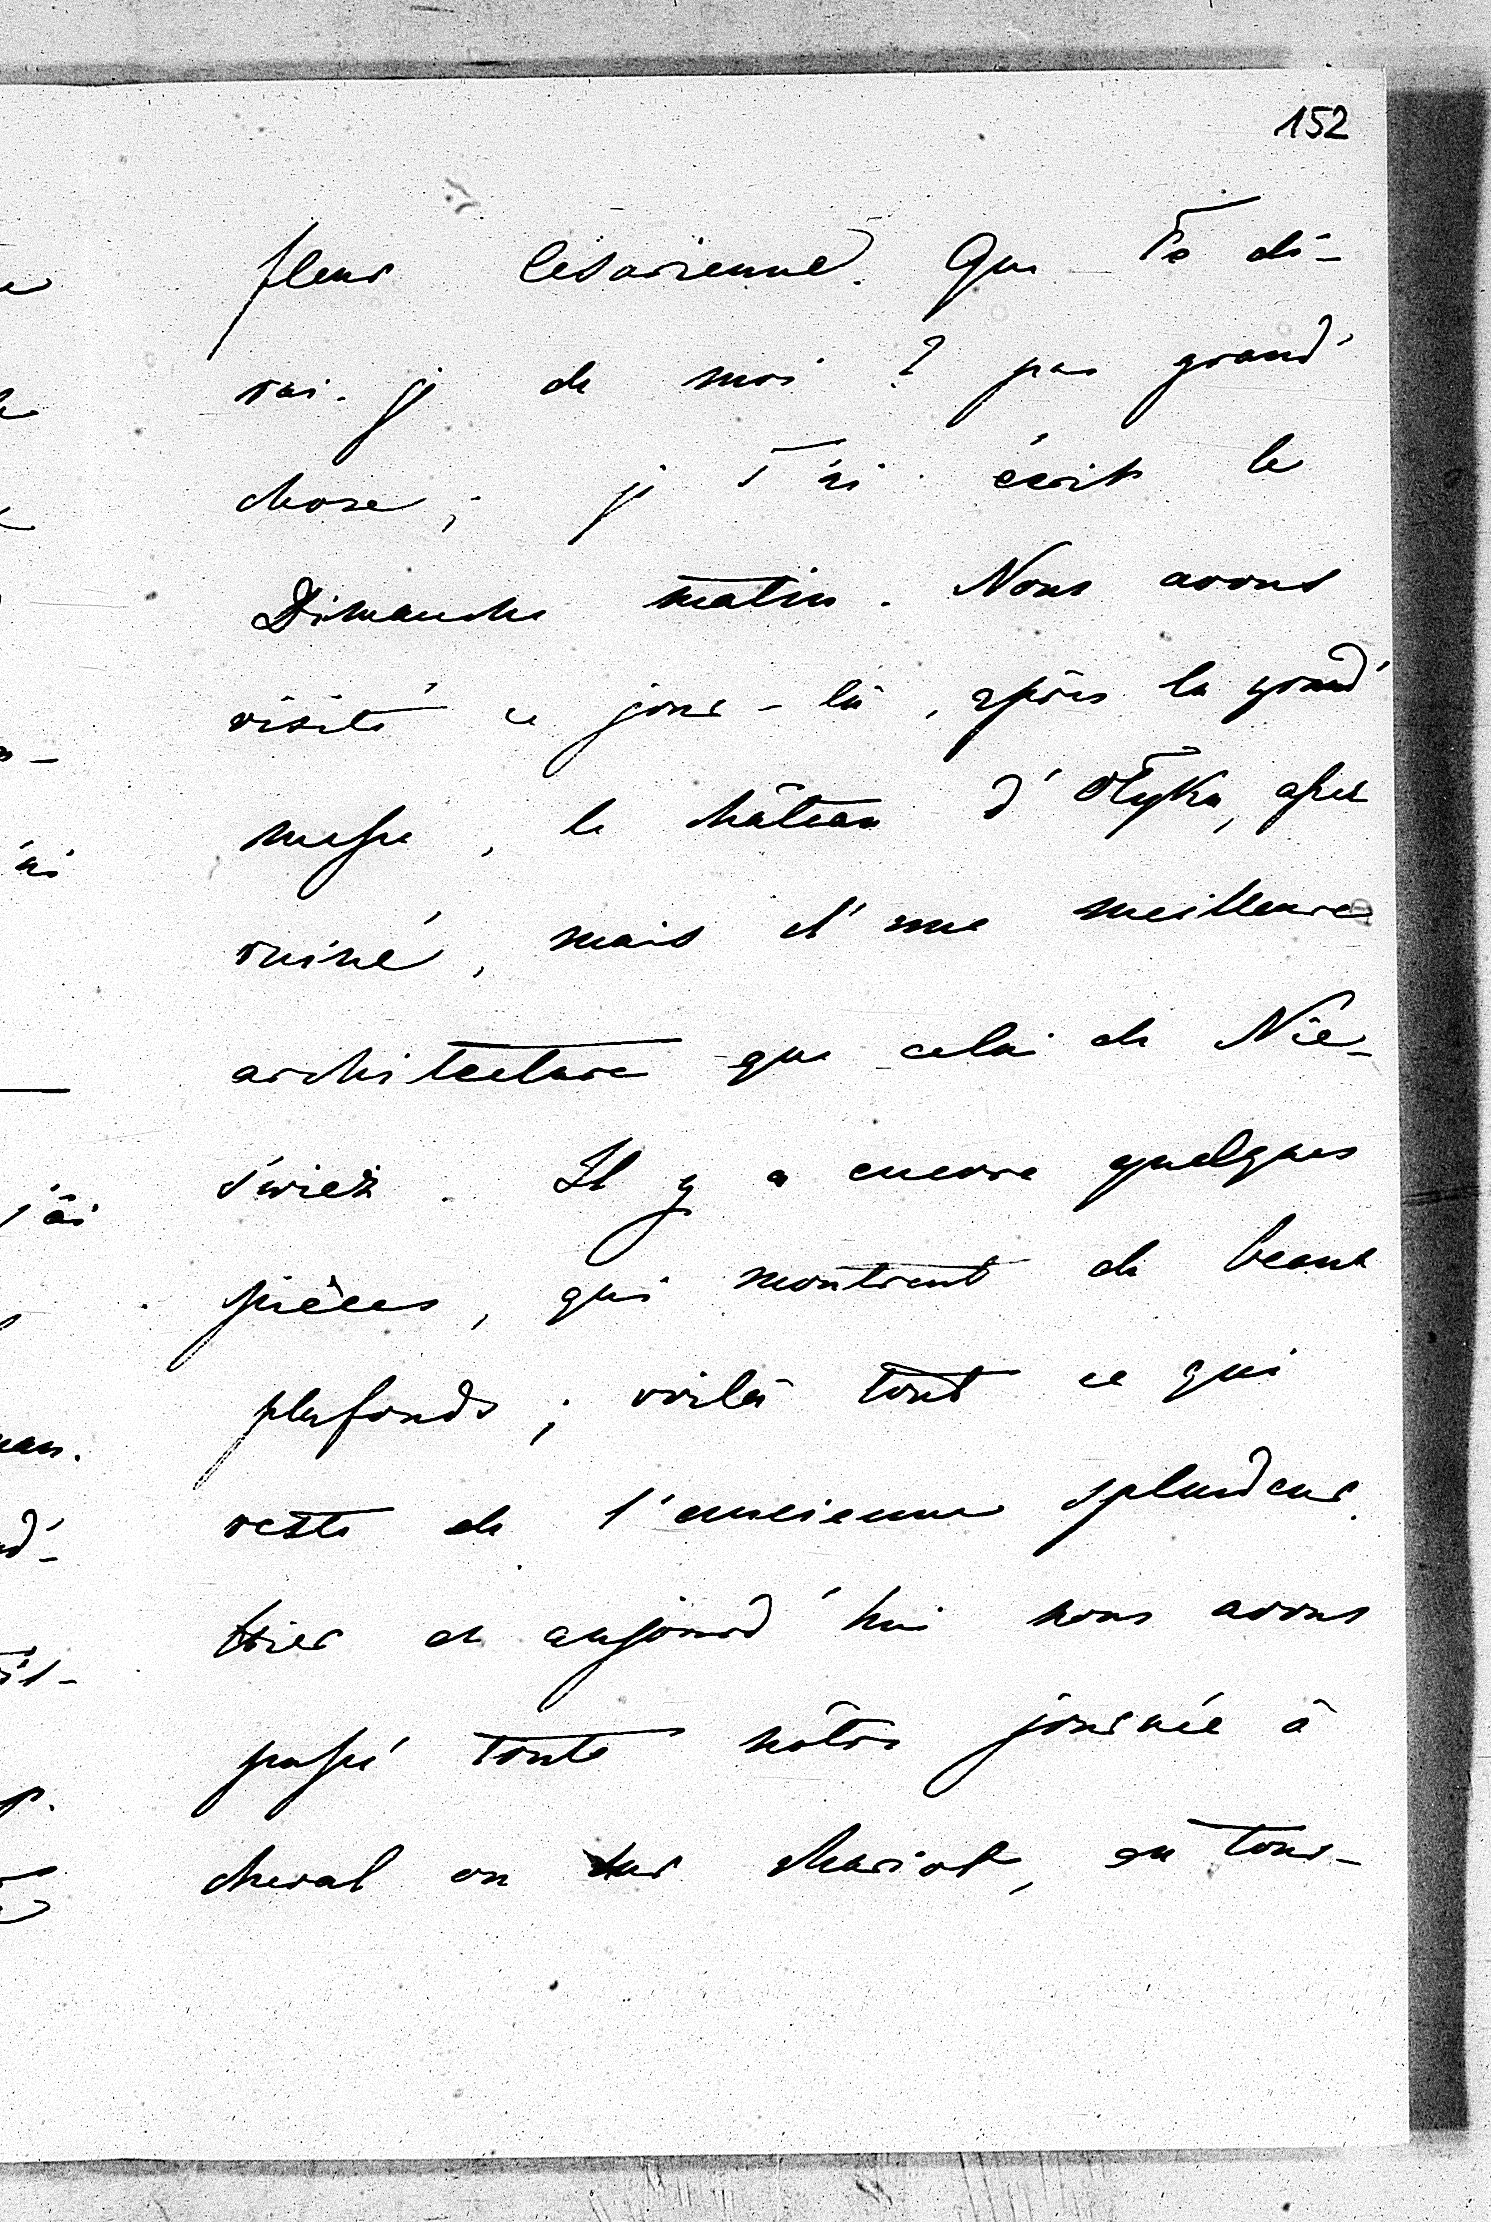 152
fleur Césarienne. Que Te di-
rai-je de moi ? pas grand'
chose ; je T'ai écrit le
Dimanche matin. Nous avons
visité ce jour-là, après la grand'
messe, le château d'Ołyka, assez
ruiné, mais d'une meilleure
architecture que celui de Nie-
śwież. Il y a encore quelques
pièces, qui montrent de beaux
plafonds ; voilà tout ce qui
reste de l'ancienne splendeur.
Hier et aujourd'hui nous avons
passé toute nôtre journée à
cheval ou sur chariot, en tour-